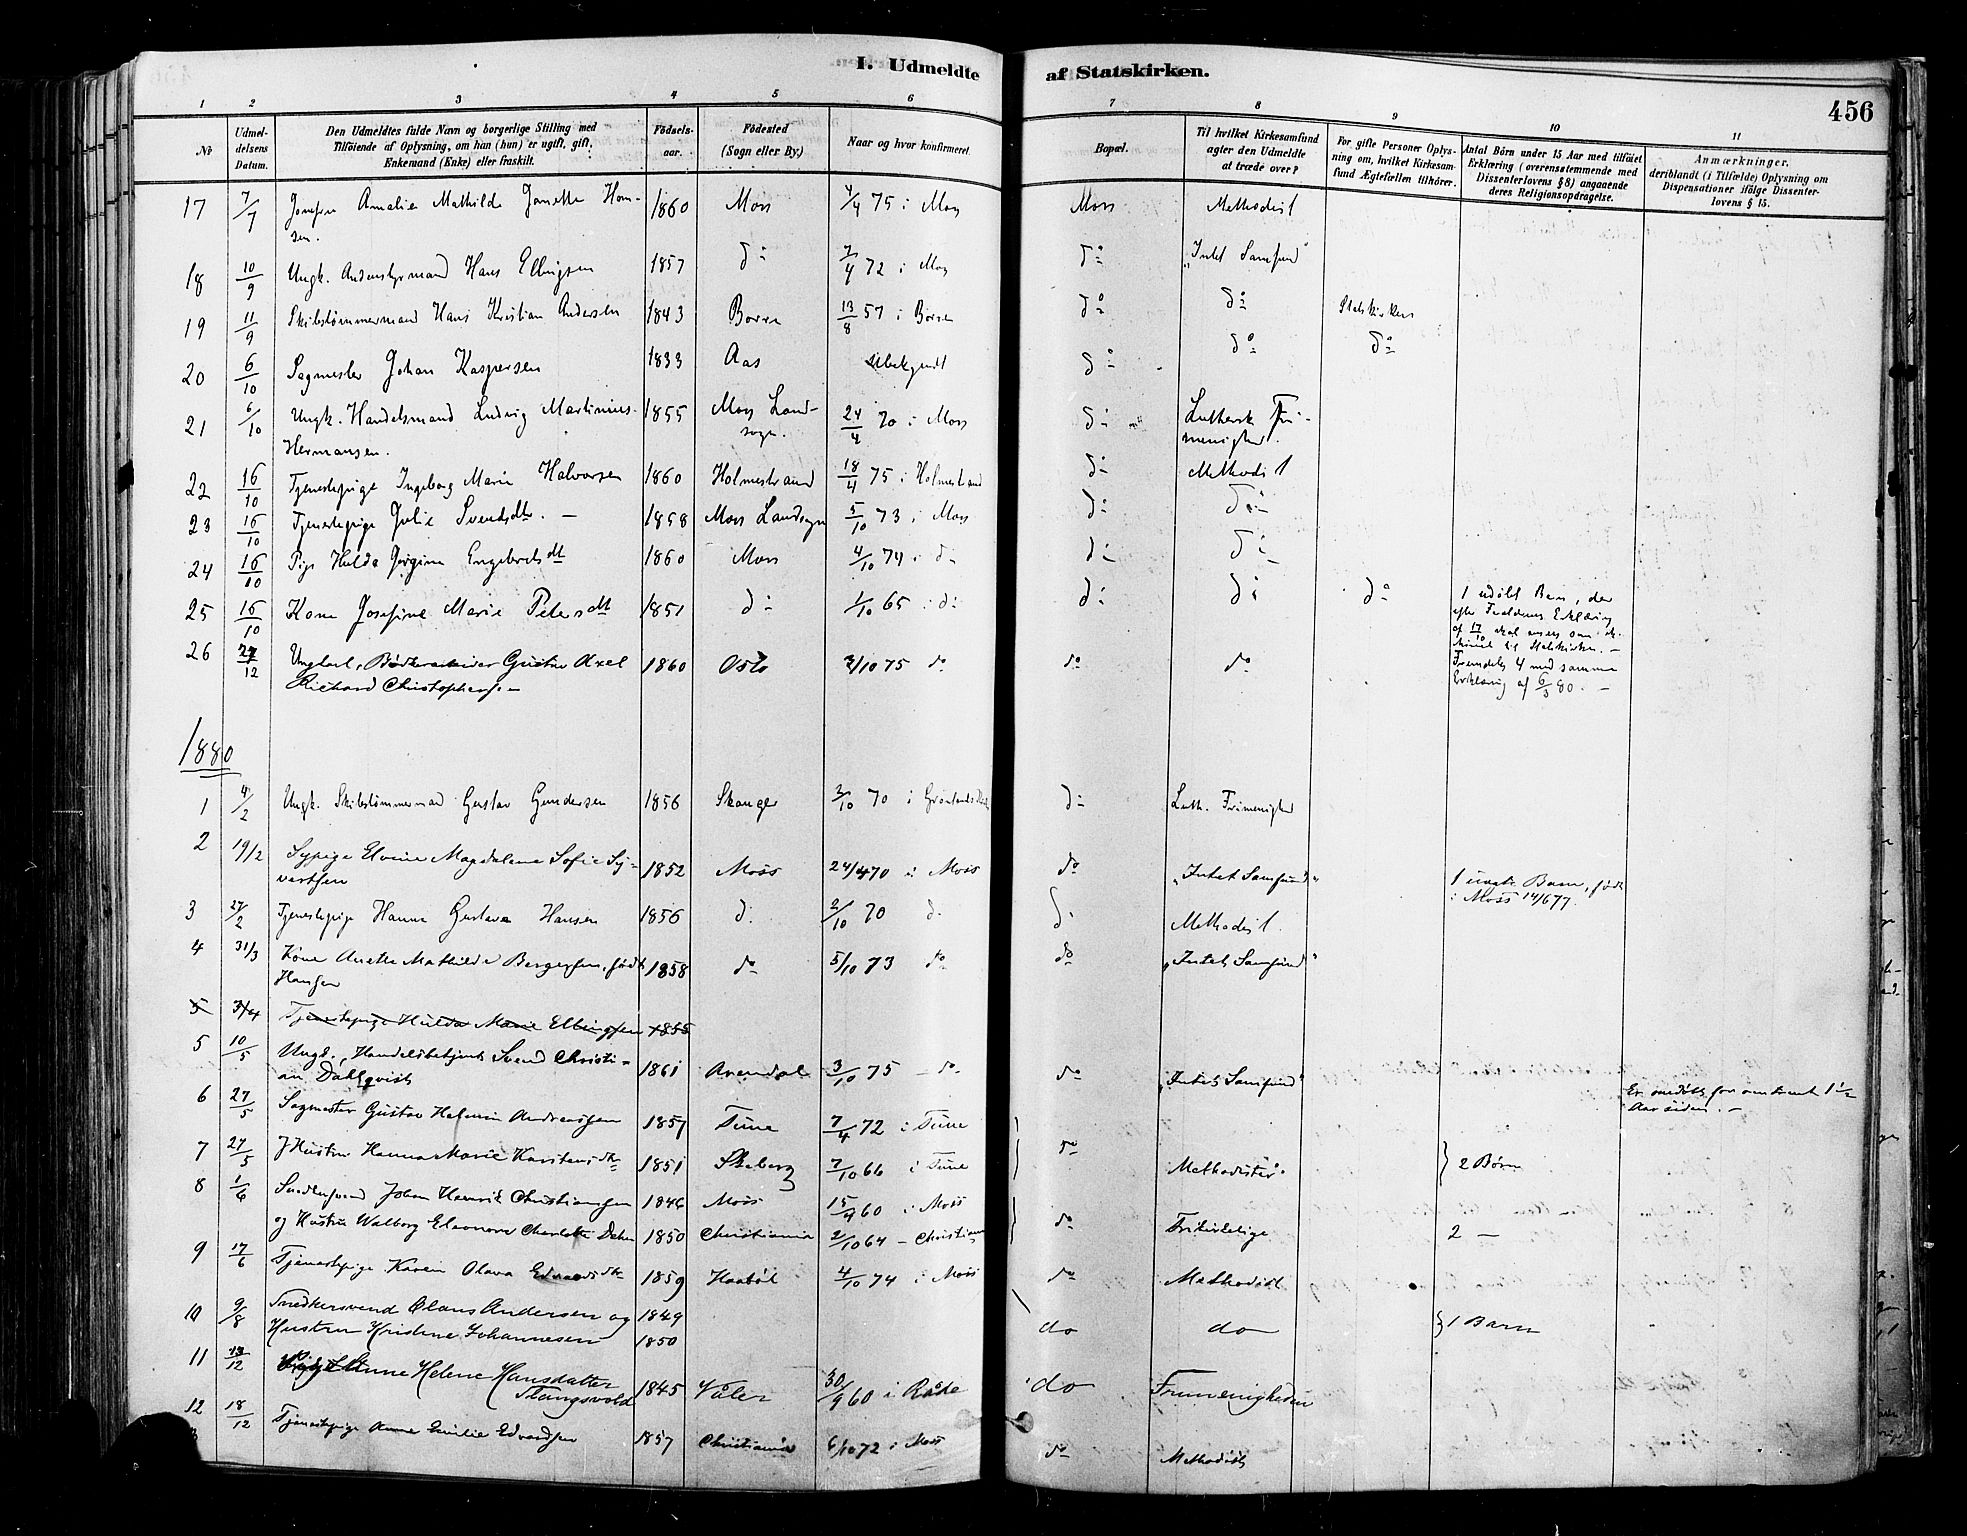 I. Udmeldte af Statskirken.
456
1 2 3 4 5 6 7 8 9 10 11
№
Udmel-
delsens
Datum.
Den Udmeldtes fulde Navn og borgerlige Stilling med
Tilføiende af Oplysning, om han (hun) er ugift, gift,
Enkemand (Enke) eller fraskilt.
Fødsels-
aar.
Fødested
(Sogn eller By.)
Naar og hvor konfirmeret.
Bopæl.
Til hvilket Kirkesamfund
agter den Udmeldte
at træde over?
For gifte Personer Oplys-
ning om, hvilket Kirkesam-
fund Ægtefællen tilhører.
Antal Børn under 15 Aar med tilføiet
Erklæring (overensstemmende med
Dissenterlovens § 8) angaaende
deres Religionsopdragelse.
Anmærkninger,
deriblandt (i Tilfælde) Oplysning om
Dispensationer ifølge Dissenter-
lovens § 15.
17 7/7 Amalie Mathilde Hom- 1860 Moss 4/4 75 i Moss Moss Methodist
sen.
18 10/9 Ungk. Hans Ellingsen 1857 do 7/4 72 i Moss do „Intet Samfund"
19 11/9 Skibstømmermand Hans Kristian Andersen 1843 Borre 13/8 57 i Borre do do Statskirken
20 6/10 Sagmester Johan Kaspersen 1833 Aas ubekjendt do do do
21 6/10 Ungk. Handelsmand Ludvig Martinius 1855 Moss Land- 24/4 70 i Moss do Luthersk Fri-
Hermansen. sogn. menighed.
22 16/10 Tjenestepige Ingeborg Marie Halvorsen 1860 Holmestrand 18/4 75 i Holmestrand do Methodist
23 16/10 Tjenestepige Julie Svendsdtr. – 1858 Moss Landsogn 5/10 73 i Moss do do
24 16/10 Pige Hulda Jørgine Engebretsdtr 1860 Moss 4/10 74 i do do do
25 16/10 Kone Josefine Marie Petersdtr 1851 do 1/10 65 i do do do do 1 udøbt Barn, der
efter Forældrenes Erklæring
af 17/10 skal ansees som
Statskirken. –
26 27/12 Ungkarl, Gustav Axel 1860 Oslo 2/10 75 do do do Fremdeles 4 med samme
Richard Christophersen – Erklæring af 6/3 80. –
1880
1 4/2 Ungk. Skibstømmermand Gustav Gundersen 1856 Skauger 3/10 70 i Grønlands do Luth. Frimenighed
2 19/2 Sypige Elvine Magdalene Sofie Sy- 1852 Moss 24/4 70 i Moss do „Intet Samfund" 1 uægte Barn, født
vertsen i Moss 14/6 77.
3 27/2 Tjenestepige Hanna Gustava Hansen 1856 do 2/10 70 do do Methodist.
4 31/3 Kone Anette Mathilde Bergersen, født 1858 do 5/10 73 do do „Intet Samfund"
Hansen
5 3/4 Tjenestepige Hulda Marie Ellingsen 1855
5 10/5 Ungk., Handelsbetjent Svend Christi- 1861 Arendal 3/10 75 – do do „Intet Samfund"
an Dahlqvist
Er omdøbt for omtrent 1½
Aar siden. –
6 27/5 Sagmester Gustav Helmin Andreassen 1857 Tune 7/4 72 i Tune
7 27/5 Hustru Hanna Marie Karstensdtr 1851 Skeberg 7/10 66 i Tune do Methodister 2 Børn
8 1/6 Snedkersvend Johan Henrik Christiansen 1846 Moss 15/4 60 i Moss
og Hustru Walborg Eleonore Charlotte Dehn 1850 Christiania 2/10 64 – Christiania do Frikirkelige 2 –
9 17/6 Tjenestepige Karen Olava Edvardsdtr 1859 Haabøl 4/10 74 i Moss do Methodist
10 9/8 Snedkersvend Claus Andersen og 1849
Hustru Kristine Johannesen 1850 do do 1 Barn
11 13/12 Anne Helene Hansdatter
Stangsvold 1845 Våler 30/9 60 i Råde do Frimenigheden
12 18/12 Tjenestepige Anne Emilie Edvardsen 1857 Christiania 6/10 72 i Moss do Methodist